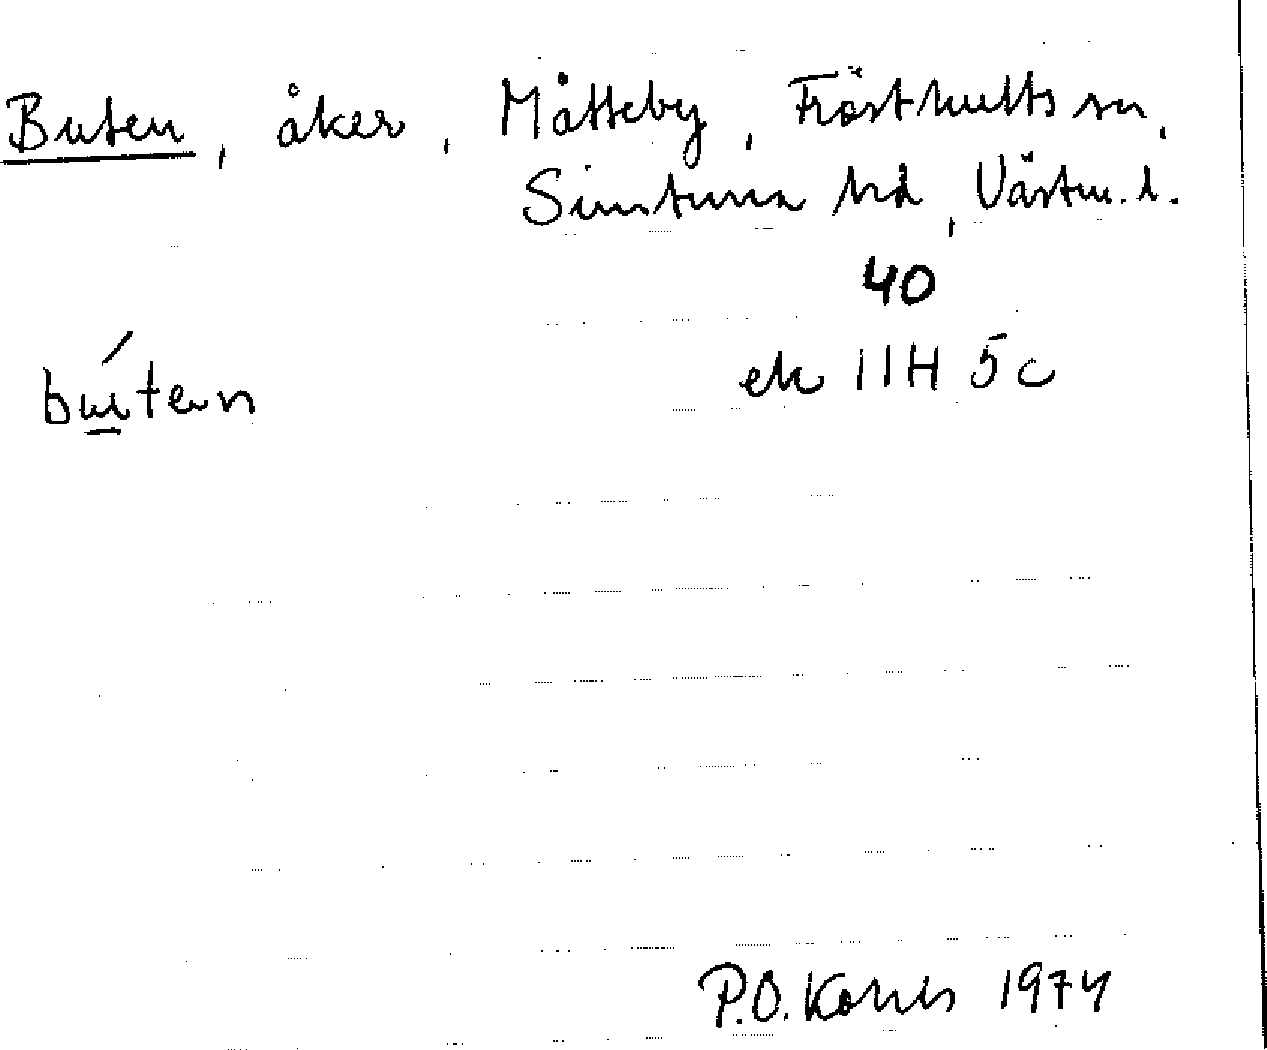 Buten, åker, Måtteby, Frösthults sn,
Simtuna hd, Västm. l.
40
ek 11H 5c
búten
P.O. 1974